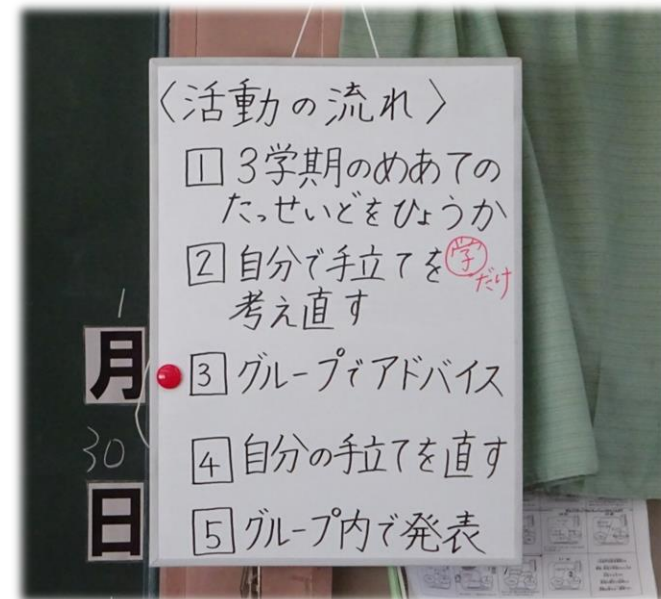 〈活動の流れ〉
1 3学期のめあての
たっせいどをひょうか
2 自分で手立てを 学だけ
考え直す
3 グループでアドバイス
4 自分の手立てを直す
5 グループ内で発表
1
月
30
日